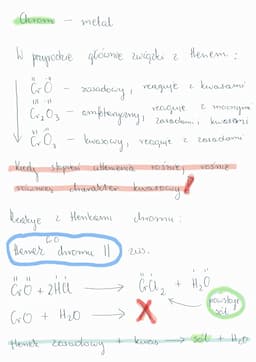 Chrom – metal
W przyrodzie głównie związki z tlenem:
II II
CrO – zasadowy, reaguje z kwasami
III II
Cr2O3 – amfoteryczny, reaguje z mocnymi zasadami, kwasami
VI II
CrO3 – kwasowy, reaguje z zasadami
Kiedy stopień utlenienia rośnie, rośnie
również charakter kwasowy!
Reakcje z tlenkami chromu:
CrO
tlenek chromu II zas.
CrO + 2HCl → CrCl2 + H2O
powstaje sól
CrO + H2O → X
tlenek zasadowy + kwas → sól + H2O